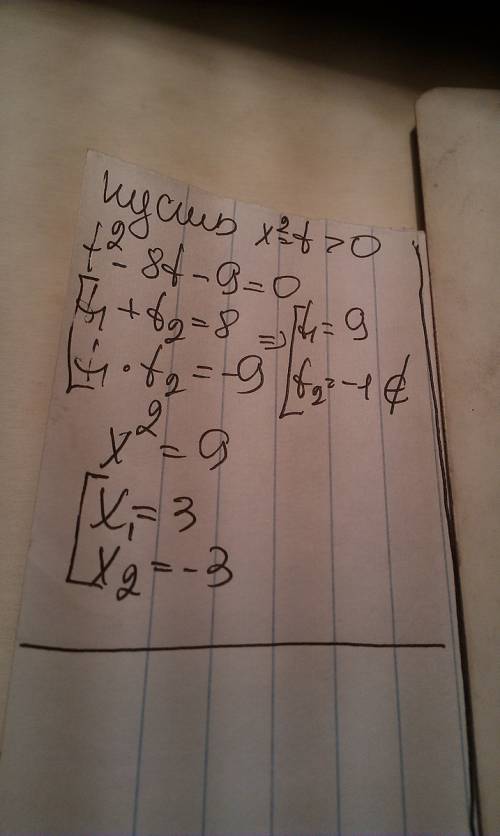 пусть x²=t > 0
t² - 8t - 9 = 0
[t₁ + t₂ = 8 => [t₁ = 9
[t₁ · t₂ = -9 [t₂ = -1 ∉
x² = 9
[x₁ = 3
[x₂ = -3